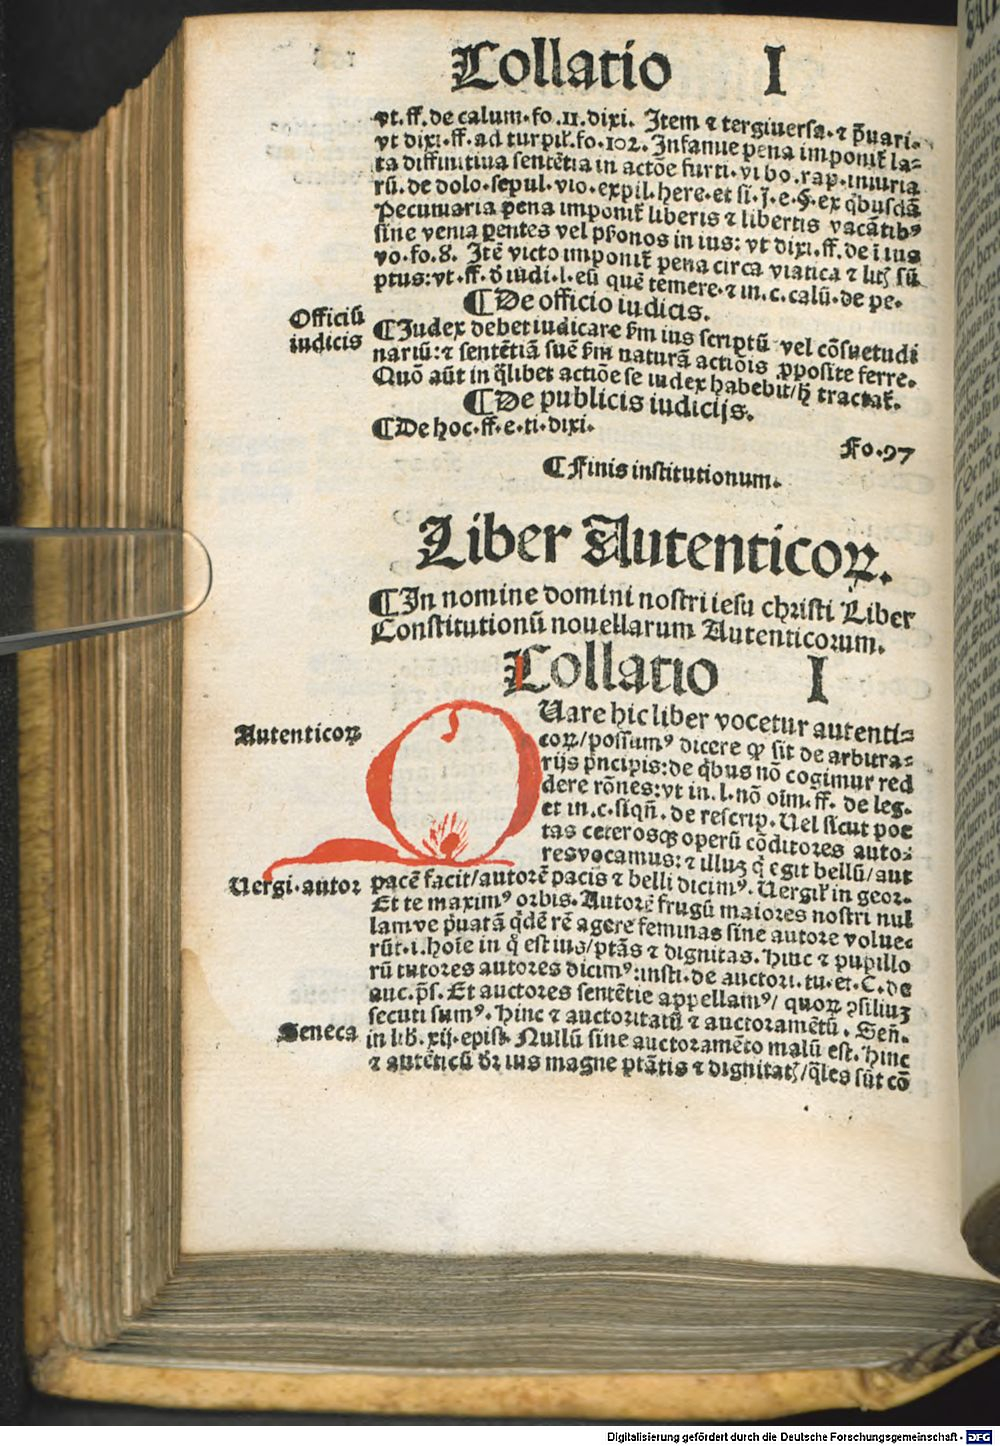 Collatio I
vt.ff.de calum.fo.11.dixi. Item ⁊ tergiuersa.⁊ p̄uari-
vt dixi.ff.ad turpil̓.fo.102. Infamie pena imponit̓ la-
ta diffinitiua sentētia in actōe furti.vi bo.rap.iniuria
rū.de dolo.sepul.vio.expil.here.et si.j.e.§.ex q̇busdā
Pecuniaria pena imponit̓ liberis ⁊ libertis vacātibꝰ
sine venia parentes vel pr̄onos in ius: vt dixi.ff.de i ius
vo.fo.8. Itē victo imponit̓ pena circa viatica ⁊ litꝭ sū
ptus:vt.ff.ō iudi.l.eū quē temere.⁊ in.c.calū.de pe.
¶De officio iudicis.
Officiū
iudicis
¶Iudex debet iudicare ẜm ius scriptū vel cōsuetudi
nariū:⁊ sentētiā suē ẜm naturā actiōis ꝓposite ferre.
Quō aūt in q̄libet actiōe se iudex habebit/ꝑ tractat̓.
¶De publicis iudicijs.
¶De hoc.ff.e.ti.dixi. Fo.97
¶Finis institutionum.
Liber Autenticoꝝ.
¶In nomine domini nostri iesu christi Liber
Constitutionū nouellarum Autenticorum.
Collatio I
Autenticoꝝ
QUare hic liber vocetur autenti-
coꝝ/possumꝰ dicere ꝙ sit de arbitra-
rijs pncipis:de q̇bus nō cogimur red
dere rōnes:vt in.l.nō oim.ff. de leg.
et in.c.siqn̄.de rescrip. Uel sicut poe
tas ceterosqꝫ operū cōditores auto-
res vocamus:⁊ illuꝫ q̇ egit bellū/aut
Uergi.autor
pacē facit/autorē pacis ⁊ belli dicimꝰ. Uergil̓ in geor.
Et te maximꝰ orbis. Autorē frugū maiores nostri nul
lam ve p̄uatā q̇dē rē agere feminas sine autore volue-
rūt.i.hoīe in q̇ est ius/ptās ⁊ dignitas. Hinc ⁊ pupillo
rū tutores autores dicimꝰ:insti.de auctori.tu.et.C.de
auc.p̄s. Et auctores sentētie appellamꝰ/ quoꝝ ꝯsiliuꝫ
secuti sumꝰ. Hinc ⁊ auctoritatū ⁊ auctoramētū. Sen̄.
Seneca
in lib̄.xij.epist̓. Nullū sine auctoramēto malū est. Hinc
⁊ autēticū dr̄ ius magne ptātis ⁊ dignitatꝭ/q̄les sūt cō
Digitalisierung gefördert durch die Deutsche Forschungsgemeinschaft - DFG